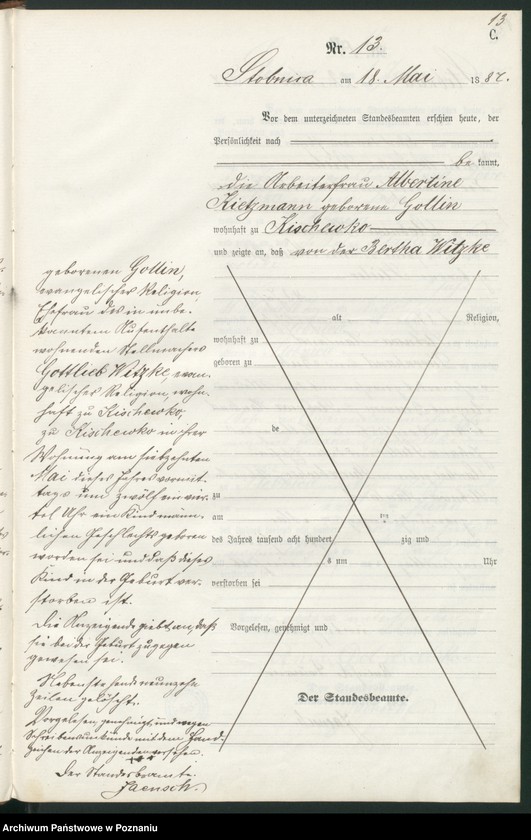 13
C.
Nr. 13.
Stobnica am 18. Mai 1887.
Vor dem unterzeichneten Standesbeamten erschien heute, der
Persönlichkeit nach
be kannt,
die Arbeiterfrau Albertine
Kietzmann geborene Gollin
wohnhaft zu Kischewko
und zeigte an, daß von der Bertha Witzke
geborenen Gollin,
evangelischer Religion,
Ehefrau des in unbe-
kanntem Aufenthalte
wohnenden Stellmachers
Gottlieb Witzke, evan-
gelischer Religion, wohn-
haft zu Kischewko,
zu Kischewko in ihrer
Wohnung am siebzehnten
Mai dieses Jahres vormit-
tags um zwölf ein vier-
tel Uhr ein Kind männ-
lichen Geschlechts geboren
worden sei und daß dieses
Kind in der Geburt ver-
storben ist.
Die Anzeigende giebt an, daß
sie bei der Geburt zugegen
gewesen sei.
Nebenstehende neunzehn
Zeilen gelöscht.
Vorgelesen, genehmigt und wegen
Schreibensunkunde mit dem Hand-
zeichen der Anzeigenden versehen.
+++
Der Standesbeamte.
Jaensch.
alt Religion,
wohnhaft zu
geboren zu
be
zu
am ten
des Jahres tausend acht hundert zig und
s um Uhr
verstorben sei
Vorgelesen, genehmigt und
Der Standesbeamte.
Archiwum Państwowe w Poznaniu